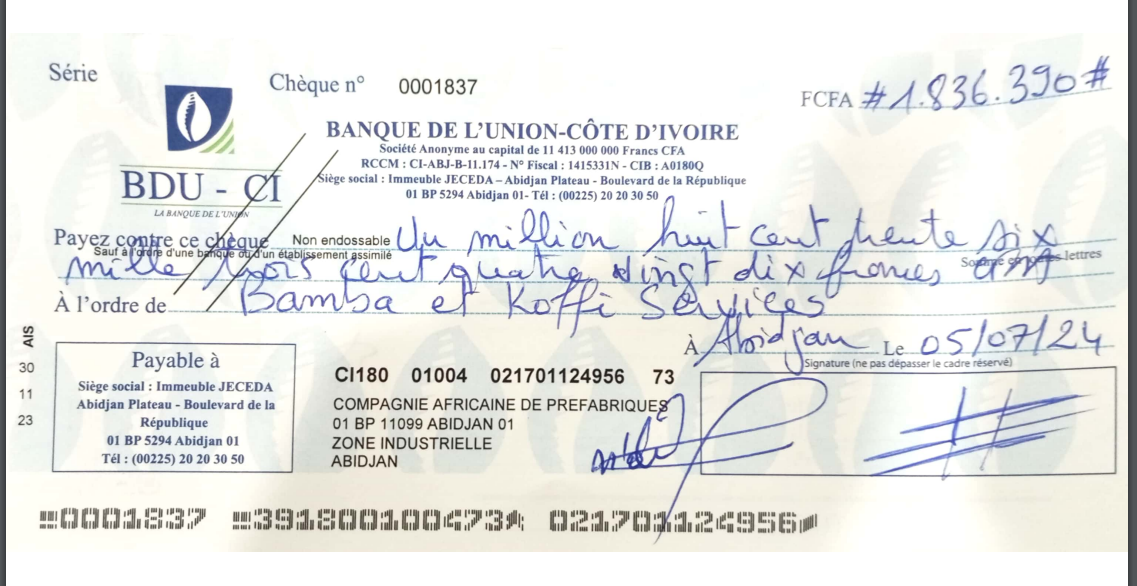 Série
Chèque n° 0001837
FCFA #1.836.390#
BANQUE DE L'UNION-CÔTE D'IVOIRE
Société Anonyme au capital de 11 413 000 000 Francs CFA
RCCM : CI-ABJ-B-11.174 - N° Fiscal : 1415331N - CIB : A0180Q
Siège social : Immeuble JECEDA – Abidjan Plateau - Boulevard de la République
01 BP 5294 Abidjan 01- Tél : (00225) 20 20 30 50
BDU - CI
LA BANQUE DE L'UNION
Payez contre ce chèque Non endossable Un million huit cent trente six
Sauf à l'ordre d'une banque ou d'un établissement assimilé
mille trois cent quatre vingt dix francs
Somme en toutes lettres
À l'ordre de Bamba et Koffi Services
À Abidjan Le 05/07/24
Signature (ne pas dépasser le cadre réservé)
AIS
30
11
23
Payable à
Siège social : Immeuble JECEDA
Abidjan Plateau - Boulevard de la
République
01 BP 5294 Abidjan 01
Tél : (00225) 20 20 30 50
CI180 01004 021701124956 73
COMPAGNIE AFRICAINE DE PREFABRIQUES
01 BP 11099 ABIDJAN 01
ZONE INDUSTRIELLE
ABIDJAN
0001837 391800100473 021701124956